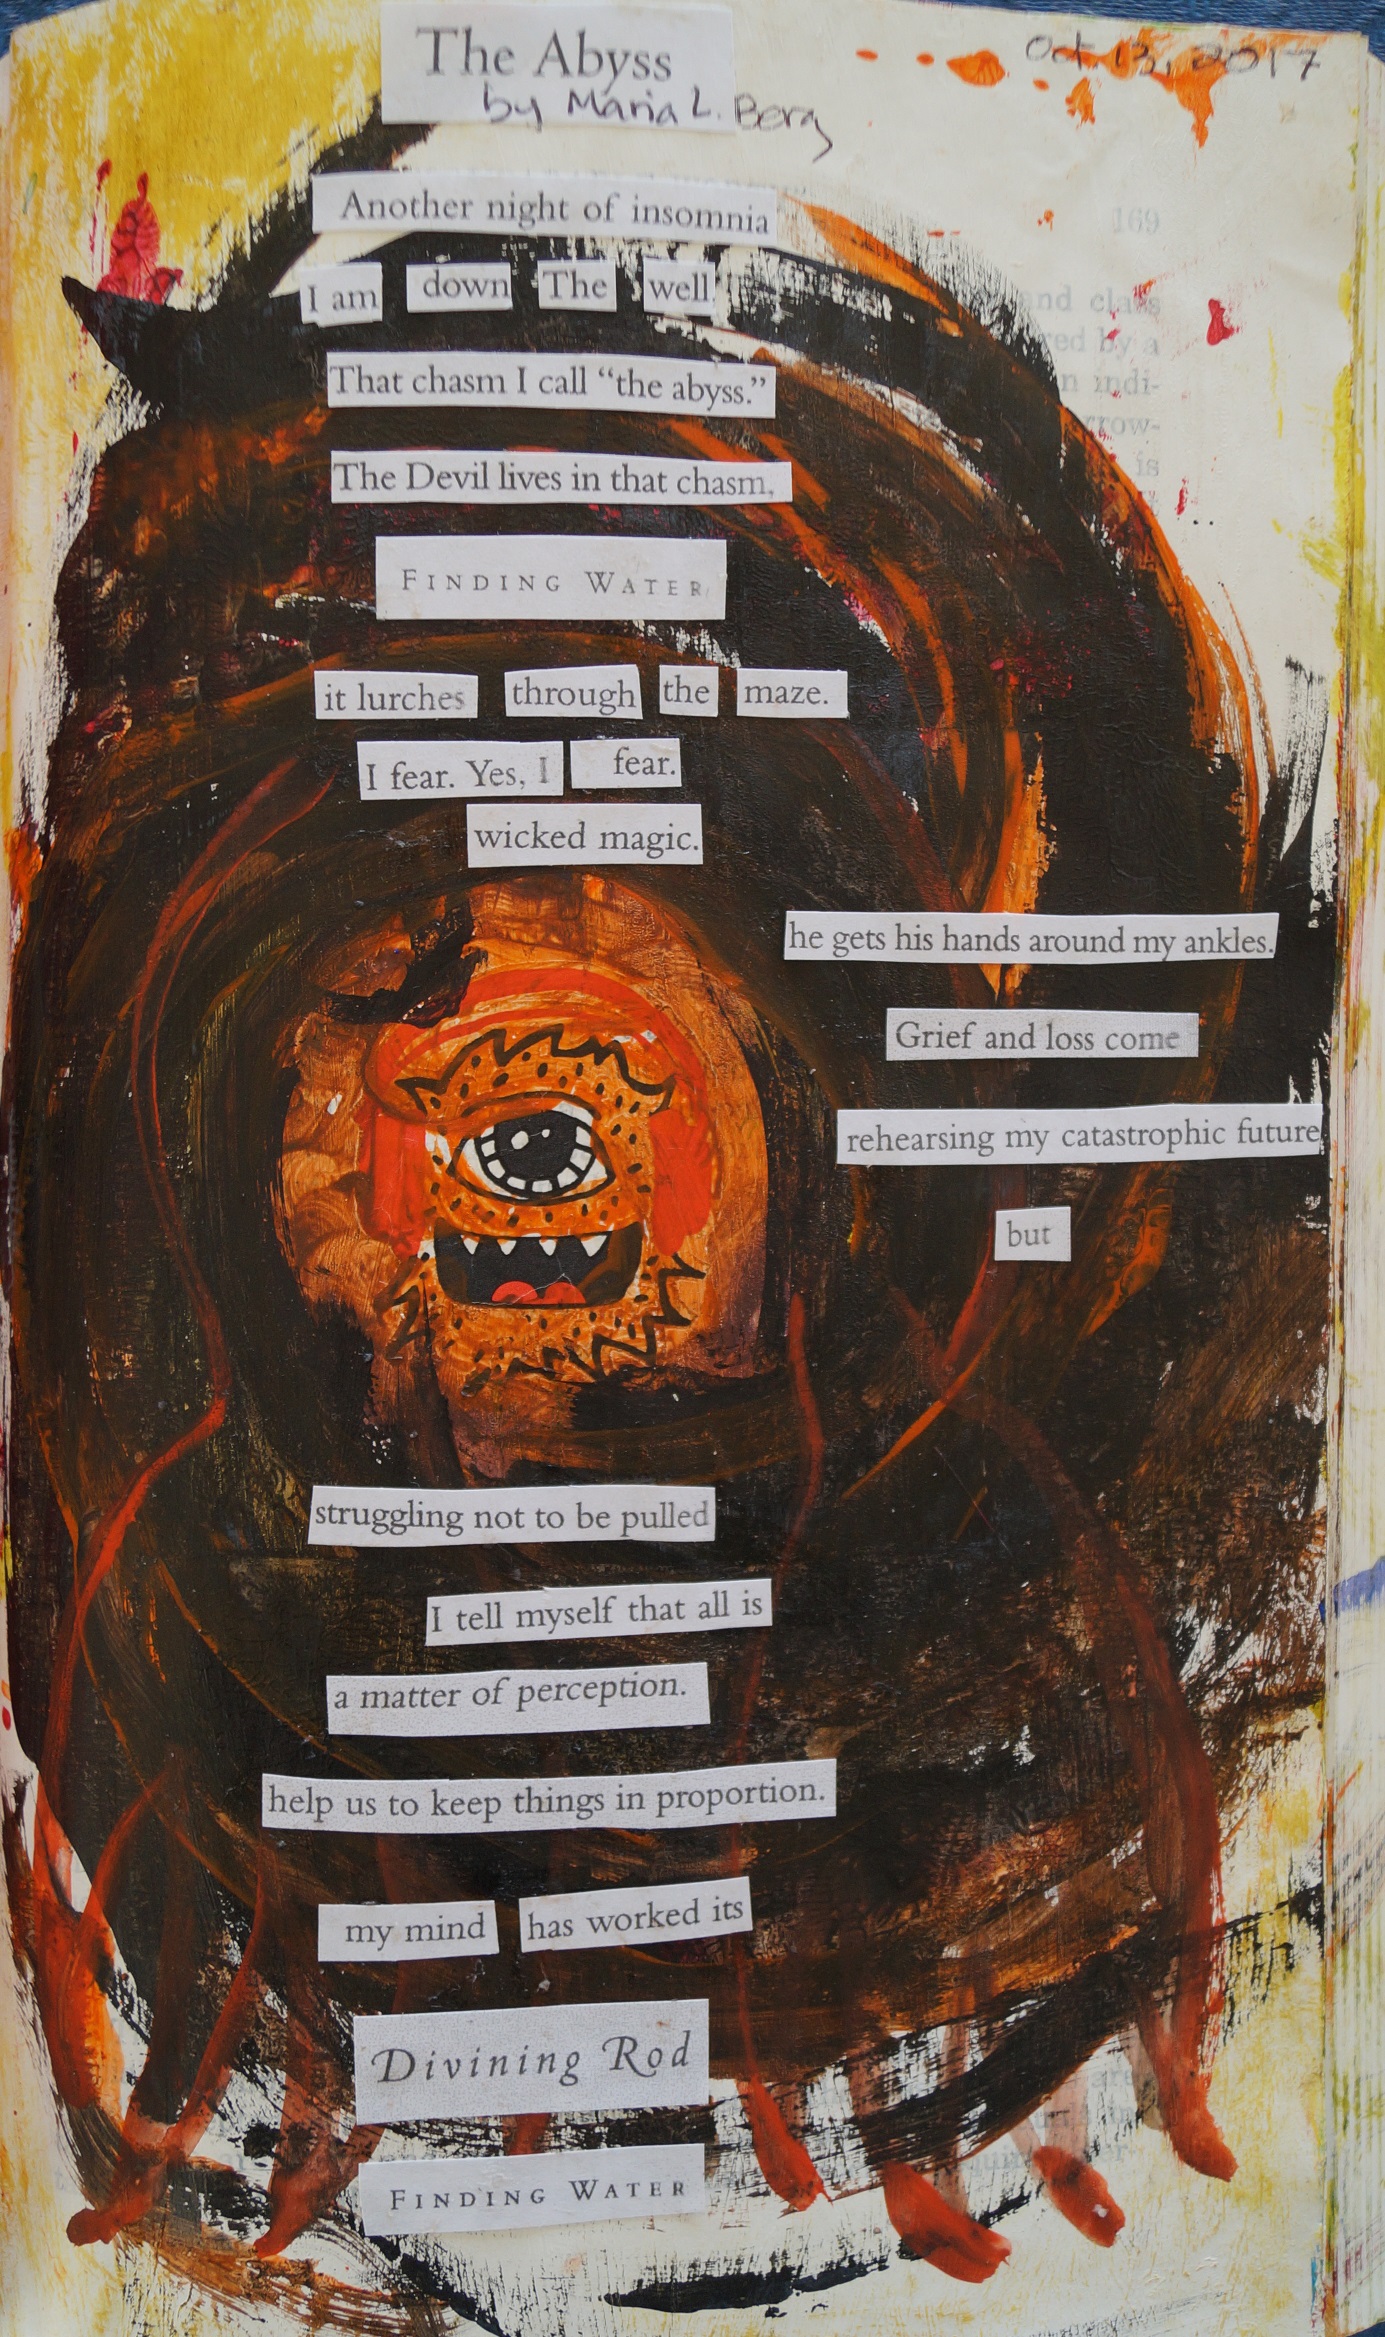 The Abyss
by Maria L. Berg
Oct. 13, 2017
169
Another night of insomnia
I am down The well
and class
red by a
That chasm I call “the abyss.”
n indi-
rrow-
The Devil lives in that chasm,
is
FINDING WATER
it lurches through the maze.
I fear. Yes, I fear.
wicked magic.
he gets his hands around my ankles.
Grief and loss come
rehearsing my catastrophic future
but
struggling not to be pulled
I tell myself that all is
a matter of perception.
help us to keep things in proportion.
my mind has worked its
Divining Rod
are
FINDING WATER